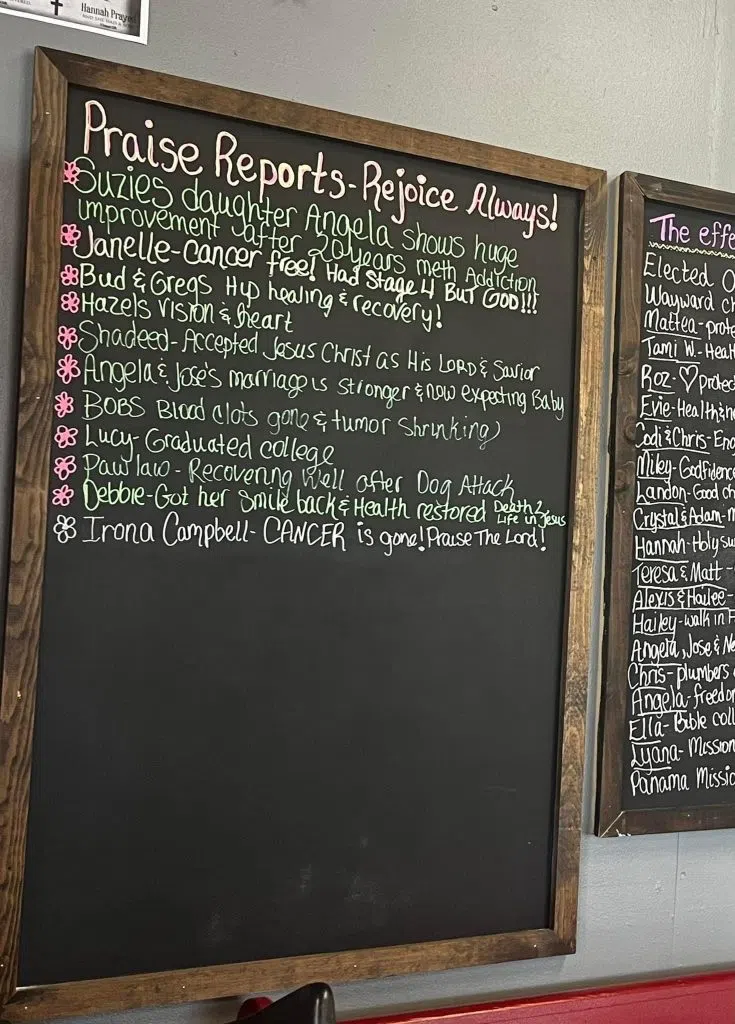 Hannah Prayed
Praise Reports-Rejoice Always!
Suzies daughter Angela shows huge
improvement after 20 years meth Addiction
Janelle-cancer free! Had Stage 4 BUT GOD!!!
Bud & Gregs Hip healing & recovery!
Hazels vision & heart
Shadeed-Accepted Jesus Christ as His LORD & Savior
Angela & Jose's marriage is stronger & now expecting Baby
BOBS Blood clots gone & tumor shrinking)
Lucy-Graduated college
Paw law-Recovering Well after Dog Attack
Debbie-Got her Smile back & Health restored Death 2
Life in Jesus
Irona Campbell-CANCER is gone! Praise The Lord!
The effe
Elected O
Wayward ch
Mattea-prote
Tami W.-Heal
Roz-♡protec
Evie-Health & he
Codi & Chris-Eng
Miley-Godfidence
Landon-Good ch
Crystal & Adam-m
Hannah-Holy su
Teresa & Matt-
Alexis & Hailee-
Hailey-walk in F
Angela, Jose & Ne
Chris-plumbers
Angela-freedom
Ella-Bible coll
Lyana-Mission
Panama Missio